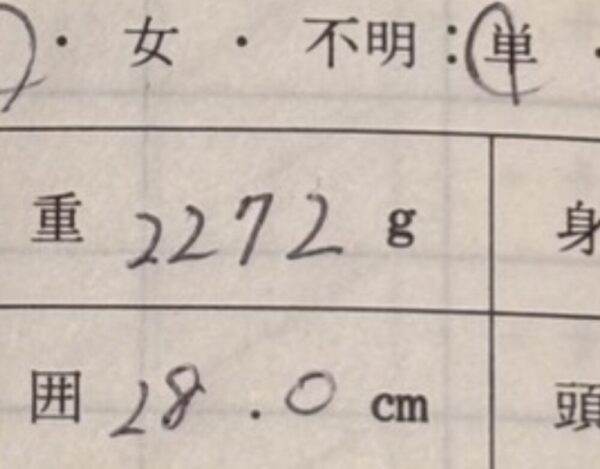 ・ 女 ・ 不明：単 ・
重 2272 g 身
囲 28.0 cm 頭